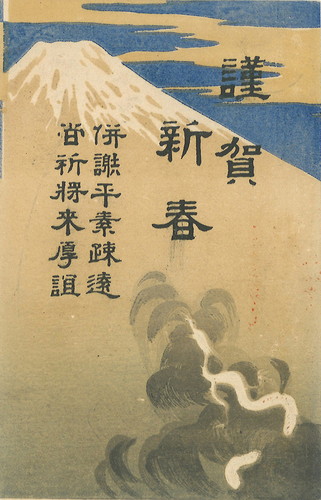 謹賀
新春
併謝平素疎遠
尚祈将来厚誼